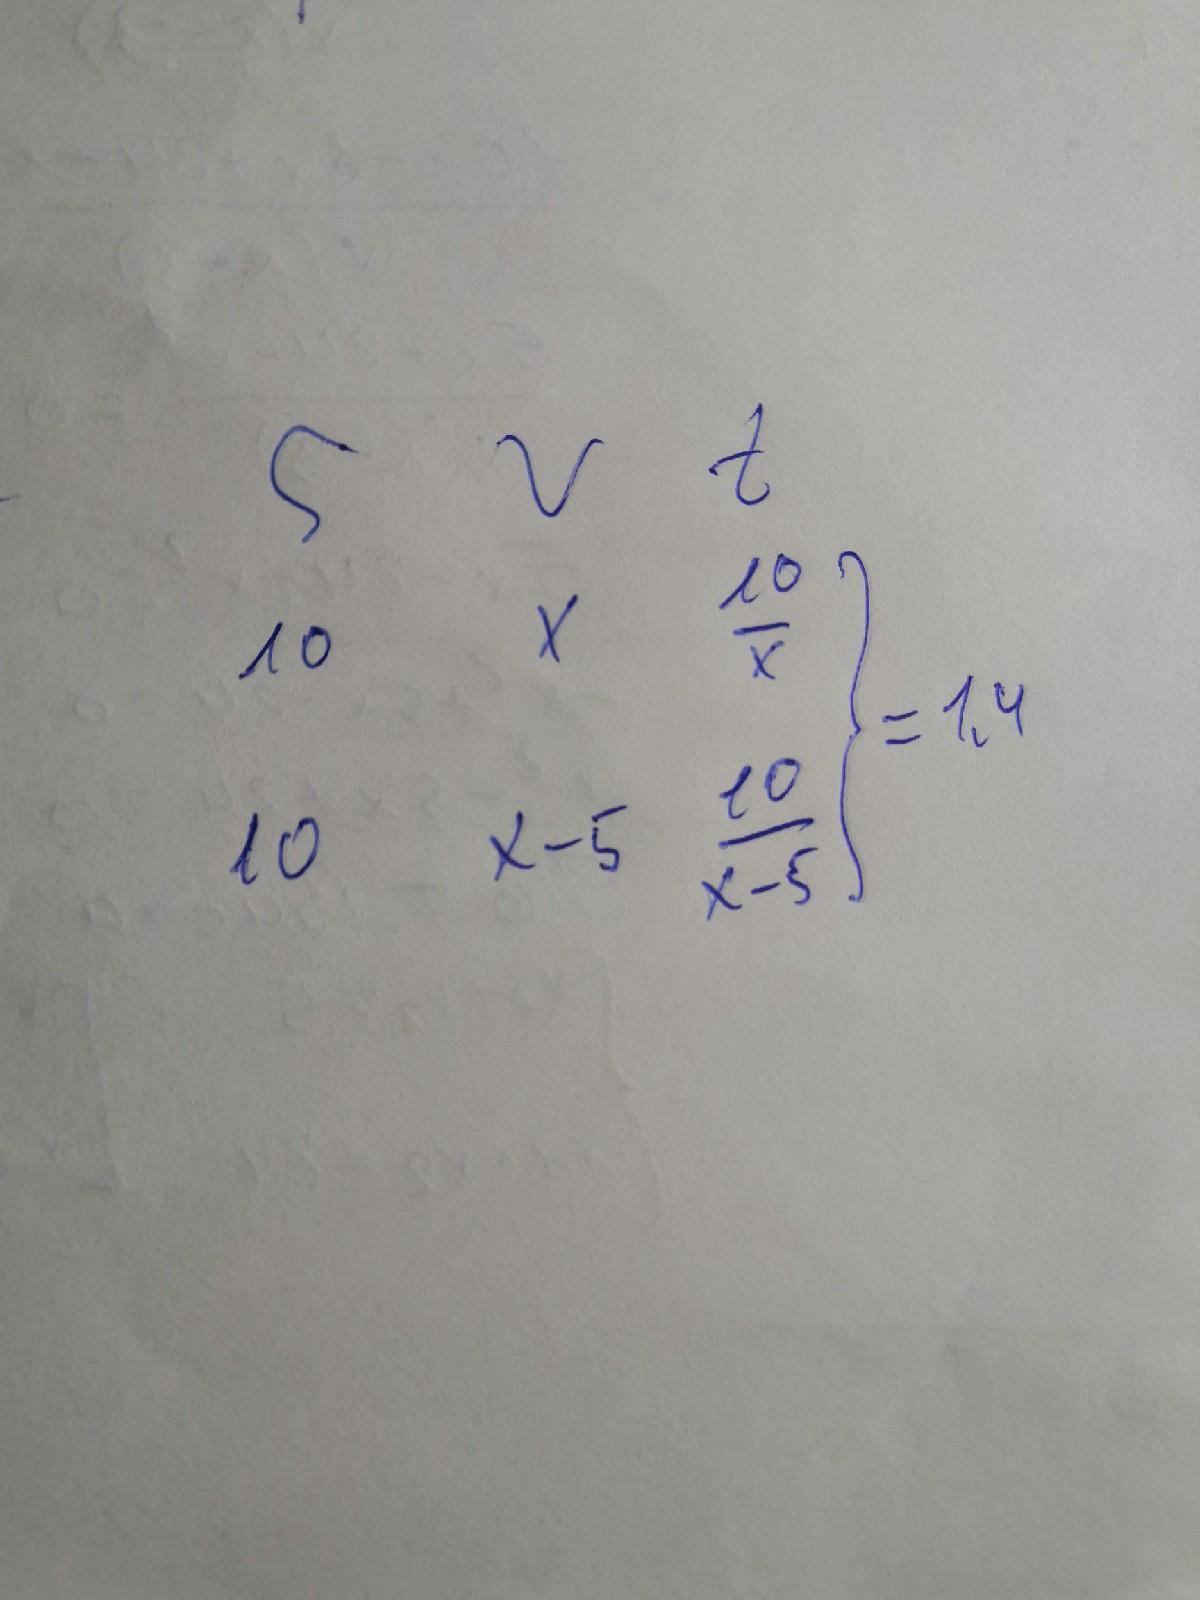 S V t
10 x 10/x
10 x-5 10/x-5 } = 1,4